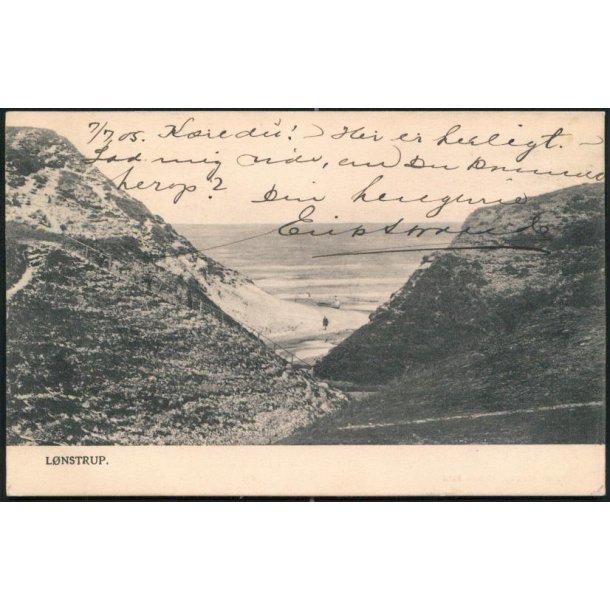 7/7 05. Kære du! – Her er herligt. –
Lad mig vide, om Du kommer
herop? Din hengivne
LØNSTRUP.